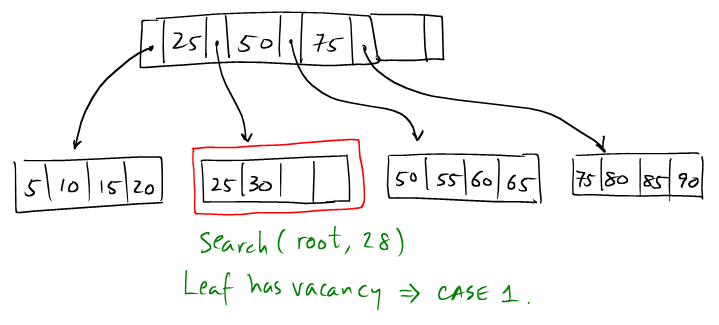 25 50 75
5 10 15 20 25 30 50 55 60 65 75 80 85 90
Search(root, 28)
Leaf has vacancy ⇒ CASE 1.